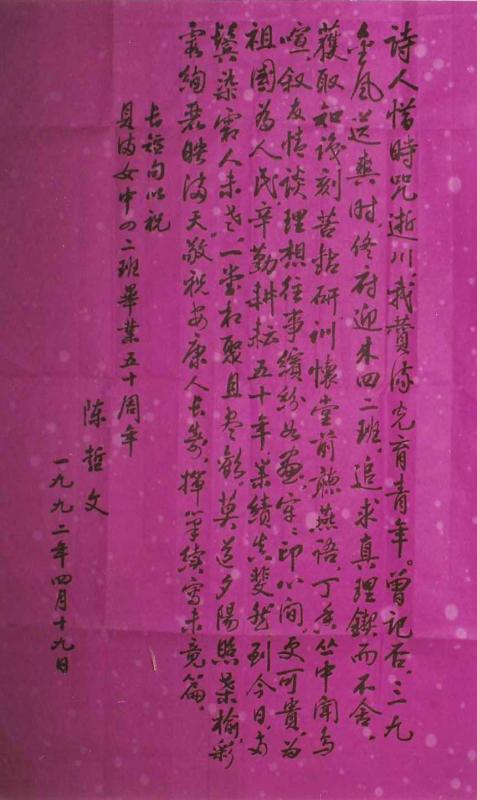 诗人惜时咒逝川我赞流光育青年。曾记否、三九
金风送爽时、佟府迎来四二班、追求真理锲而不舍、
获取知识刻苦钻研、训怀堂前听燕语、丁香丛中闻鸟
喧、叙友情谈理想往事缤纷如画、牢牢印心间、更可贵、为
祖国为人民辛勤耕耘五十年、业绩真斐然到今日、
鬓染霜人未老、一堂相聚且尽欢、莫道夕阳照桑榆、彩
霞绚丽映满天、敬祝安康人长寿、挥笔续写未竟篇、
长短句以祝
贝满女中四二班毕业五十周年
陈哲文
一九九二年四月十九日